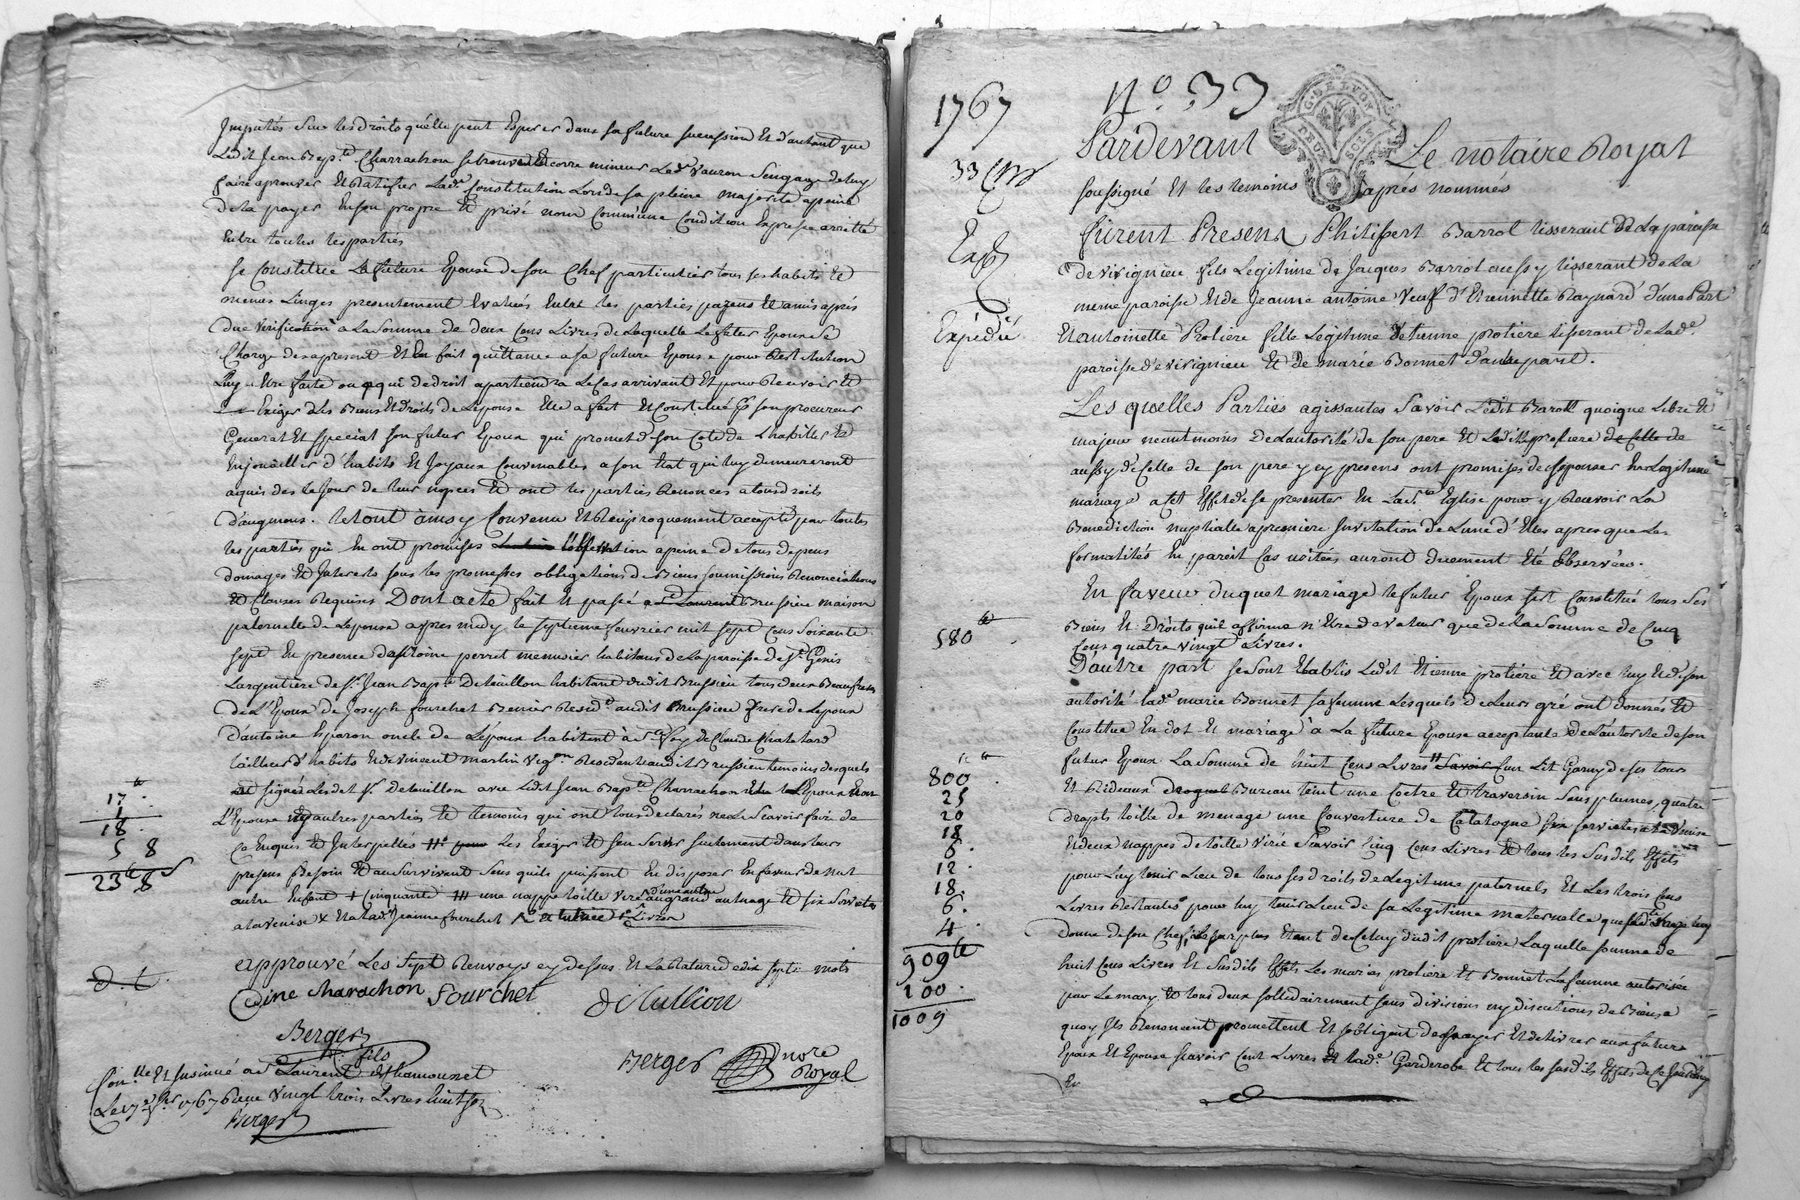 Imputés sur les droits qu'elle peut Esperer dans sa future succession Et d'autant que
Ledit Jean Bap.te Charrachon se trouve Encore mineur Led. Vauron s'engage de luy
faire aprouver Et Ratifier Lad.e Constitution Lors de sa pleine majorité apeine
de la payer En son propre Et privé nom Commune Condition Expresse arrettée
Entre toutes les parties
Se Constitue La future Epouse de son Chef particulier tous ses habits Et
menus Linges presentement Evalués Entre les parties parens Et amis après
due verification a La somme de deux Cens Livres de Laquelle Le futur Epoux Se
Charge des apresent Et En fait quittance a sa future Epouse pour Restitution
Luy Etre faite ou a qui de droit apartiendra Le Cas arrivant Et pour Recevoir Et
Exiger Les Biens Et droits de Lepouse Elle a fait Et Constitué son procureur
General Et special son futur Epoux qui promet de son Coté de L'habiller Et
Enjoailler d'habits Et Joyaux Convenables a son Etat qui luy demeureront
aquis des Le Jour de leur nopces Et ont les parties Renoncés a tous droits
d'augmens. Le tout ainsy Convenu Et Reciproquement accepté par toutes
les parties qui En ont promises L'observation apeine de tous depens
domages Et Interets sous les promesses obligations de Biens soumissions Renonciations
Et Clauses Requises Dont acte fait Et passé a Brussieu maison
paternelle de Lepouse apres midy le septieme fevrier mil sept Cens soixante
sept En presence perret menusier habitant de La paroisse de St. Genis
Largentiere de Sr. Jean Bap.te Detuillon habitant dudit Brussieu tous deux Beaufreres
de L'Epoux de Joseph fourchet Resid.t audit Brussieu frere de Lepoux
Dantoine Eparon oncle de L'épouse habitant à de Claude Chatelard
tailleur d'habits Et de vincent martin Vig.on Residents audit Brussieu temoins Lesquels
signés Ledit Sr. Detuillon avec Ledit Jean Bap.te Charrachon L'Epoux Et non
L'Epouse ny autres parties Et temoins qui ont tous declarés ne Le Scavoir faire de
Ce Enquis Et Interpellés Les Exiger Et s'en servir seulement dans leurs
presens Besoin Et au Survivant Sans qu'ils puissent En disposer En faveur de nul
autre Enfant + Cinquante une nappe toille d'une aune Et six Serviettes
a la venise x Et lad. Jeanne fourchet Livres
17.
1
18.
5 8
23 8
approuvé Les sept Renvoys cy dessus Et La Rature de dix sept mots
d. t.
Charachon Fourchet detuillion
Berger
fils
Berger nore
Royal
Con.lle Et Insinué a St Laurent de Chamousset
Le 1767 Reçu Vingt trois Livres huit s.
Berger
1767
N.o 33
G. DE LYON
DEUX SOLS
33
Exp
Expedié
Pardevant Le notaire Royal
soussigné Et les temoins après nommés
furent Presens Philibert Barrol tisserant de La paroisse
de vivignieu fils Legitime de Jacques Barrol aussy tisserant de La
meme paroisse Et de Jeanne antoine Veuf d'Etiennette Raynard d'une Part
Et antoinette Proliere fille Legitime d'etienne proliere tisserant de Lad.e
paroisse d'evivignieu Et de marie Bonnet d'autre part.
Les quelles Parties agissantes Savoir Ledit Barroll quoique Libre Et
majeur neantmoins de L'autorité de son pere Et Ladite proliere de Celle de
aussy de Celle de son pere y cy presens ont promises de s'epouser En Legitime
mariage a cet Effet de se presenter En La Ste Eglise pour y Recevoir La
Benediction nuptialle a premiere Invitation de L'une d'Elles apres que Les
formalités En pareil Cas usitées auront duement Eté observées.
En faveur duquel mariage le futur Epoux s'est Constitué tous Ses
Biens Et Droits qu'il affirme n'Etre de valeur que de La somme de Cinq
Cens quatre vingt Livres.
580
D'autre part se sont Etablis Ledit Etienne proliere Et avec luy Et de son
autorité lad.e marie Bonnet sa femme Lesquels de Leurs gré ont donnés Et
Constitué En dot Et mariage a La future Epouse acceptante de L'autorité de son
futur Epoux La Somme de huit Cens Livres Savoir Un Lit Garny de ses tours
Et Rideaux Bureau teint une Coetre Et traversin sous plumes, quatre
draps toille de menage une Couverture de Catalogne six serviettes
Et deux nappes de toille Scavoir Cinq Cens Livres Et tous les Susdits Effets
pour Luy tenir Lieu de tous ses droits de Legitime paternels Et Les trois Cens
Livres Restantes pour luy tenir Lieu de sa Legitime maternelle que sad.e mere luy
donne de son Chef, Le surplus Etant de Celuy dudit proliere Laquelle somme de
huit Cens Livres Et Susdits Effets Les mariés proliere Et Bonnet La femme autorisée
par Le mary Et tous deux sollidairement sans divisions ny discutions de Biens a
quoy Ils Renoncent promettent Et s'obligent de payer Et delivrer aux future
Epoux Et Epouse Scavoir Cent Livres Et lad.e Garderobe Et tous les susdits Effets
800
25
20
18
6.
12.
18.
6.
4.
909
100.
1009